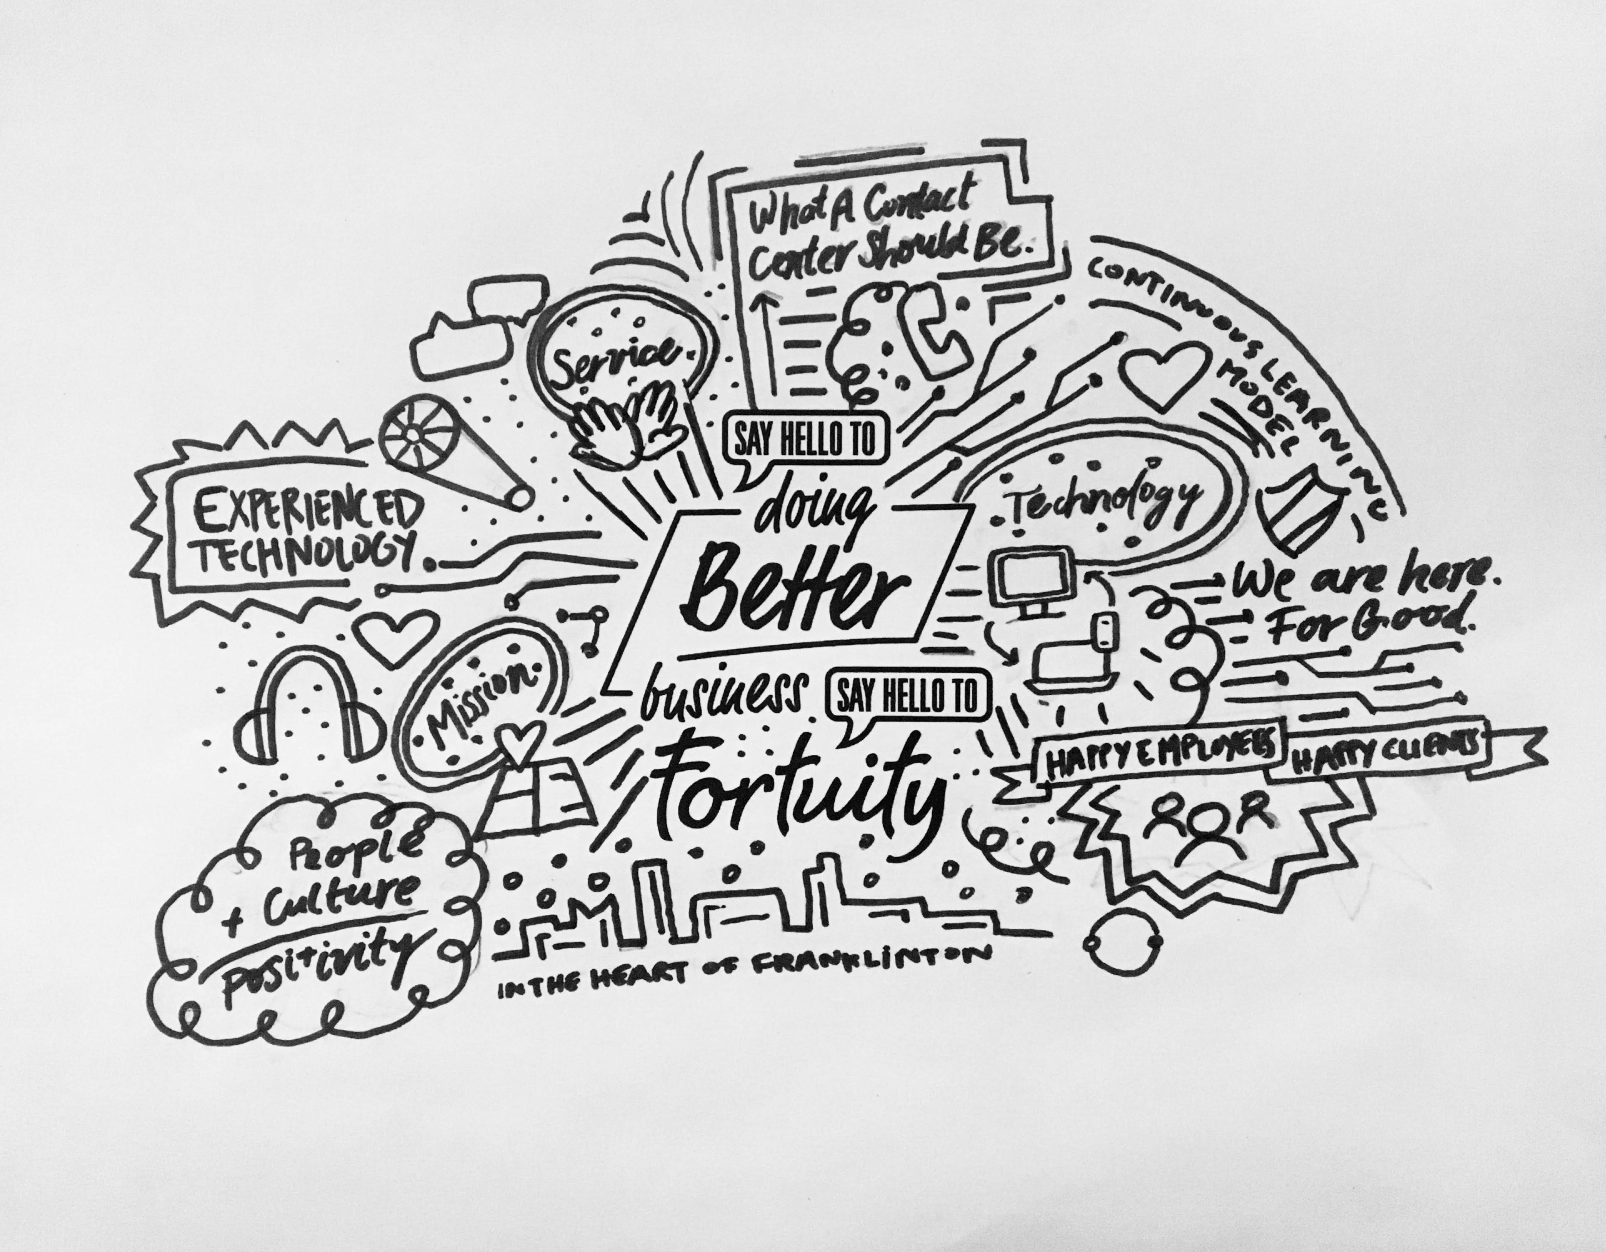 What A Contact
Center Should Be.
CONTINUOUS LEARNING
MODEL
Service.
SAY HELLO TO
doing
Better
business
SAY HELLO TO
Fortuity
EXPERIENCED
TECHNOLOGY.
Technology
We are here.
For Good.
Mission.
HAPPY EMPLOYEES
HAPPY CLIENTS
People
+ Culture
Positivity
IN THE HEART OF FRANKLINTON